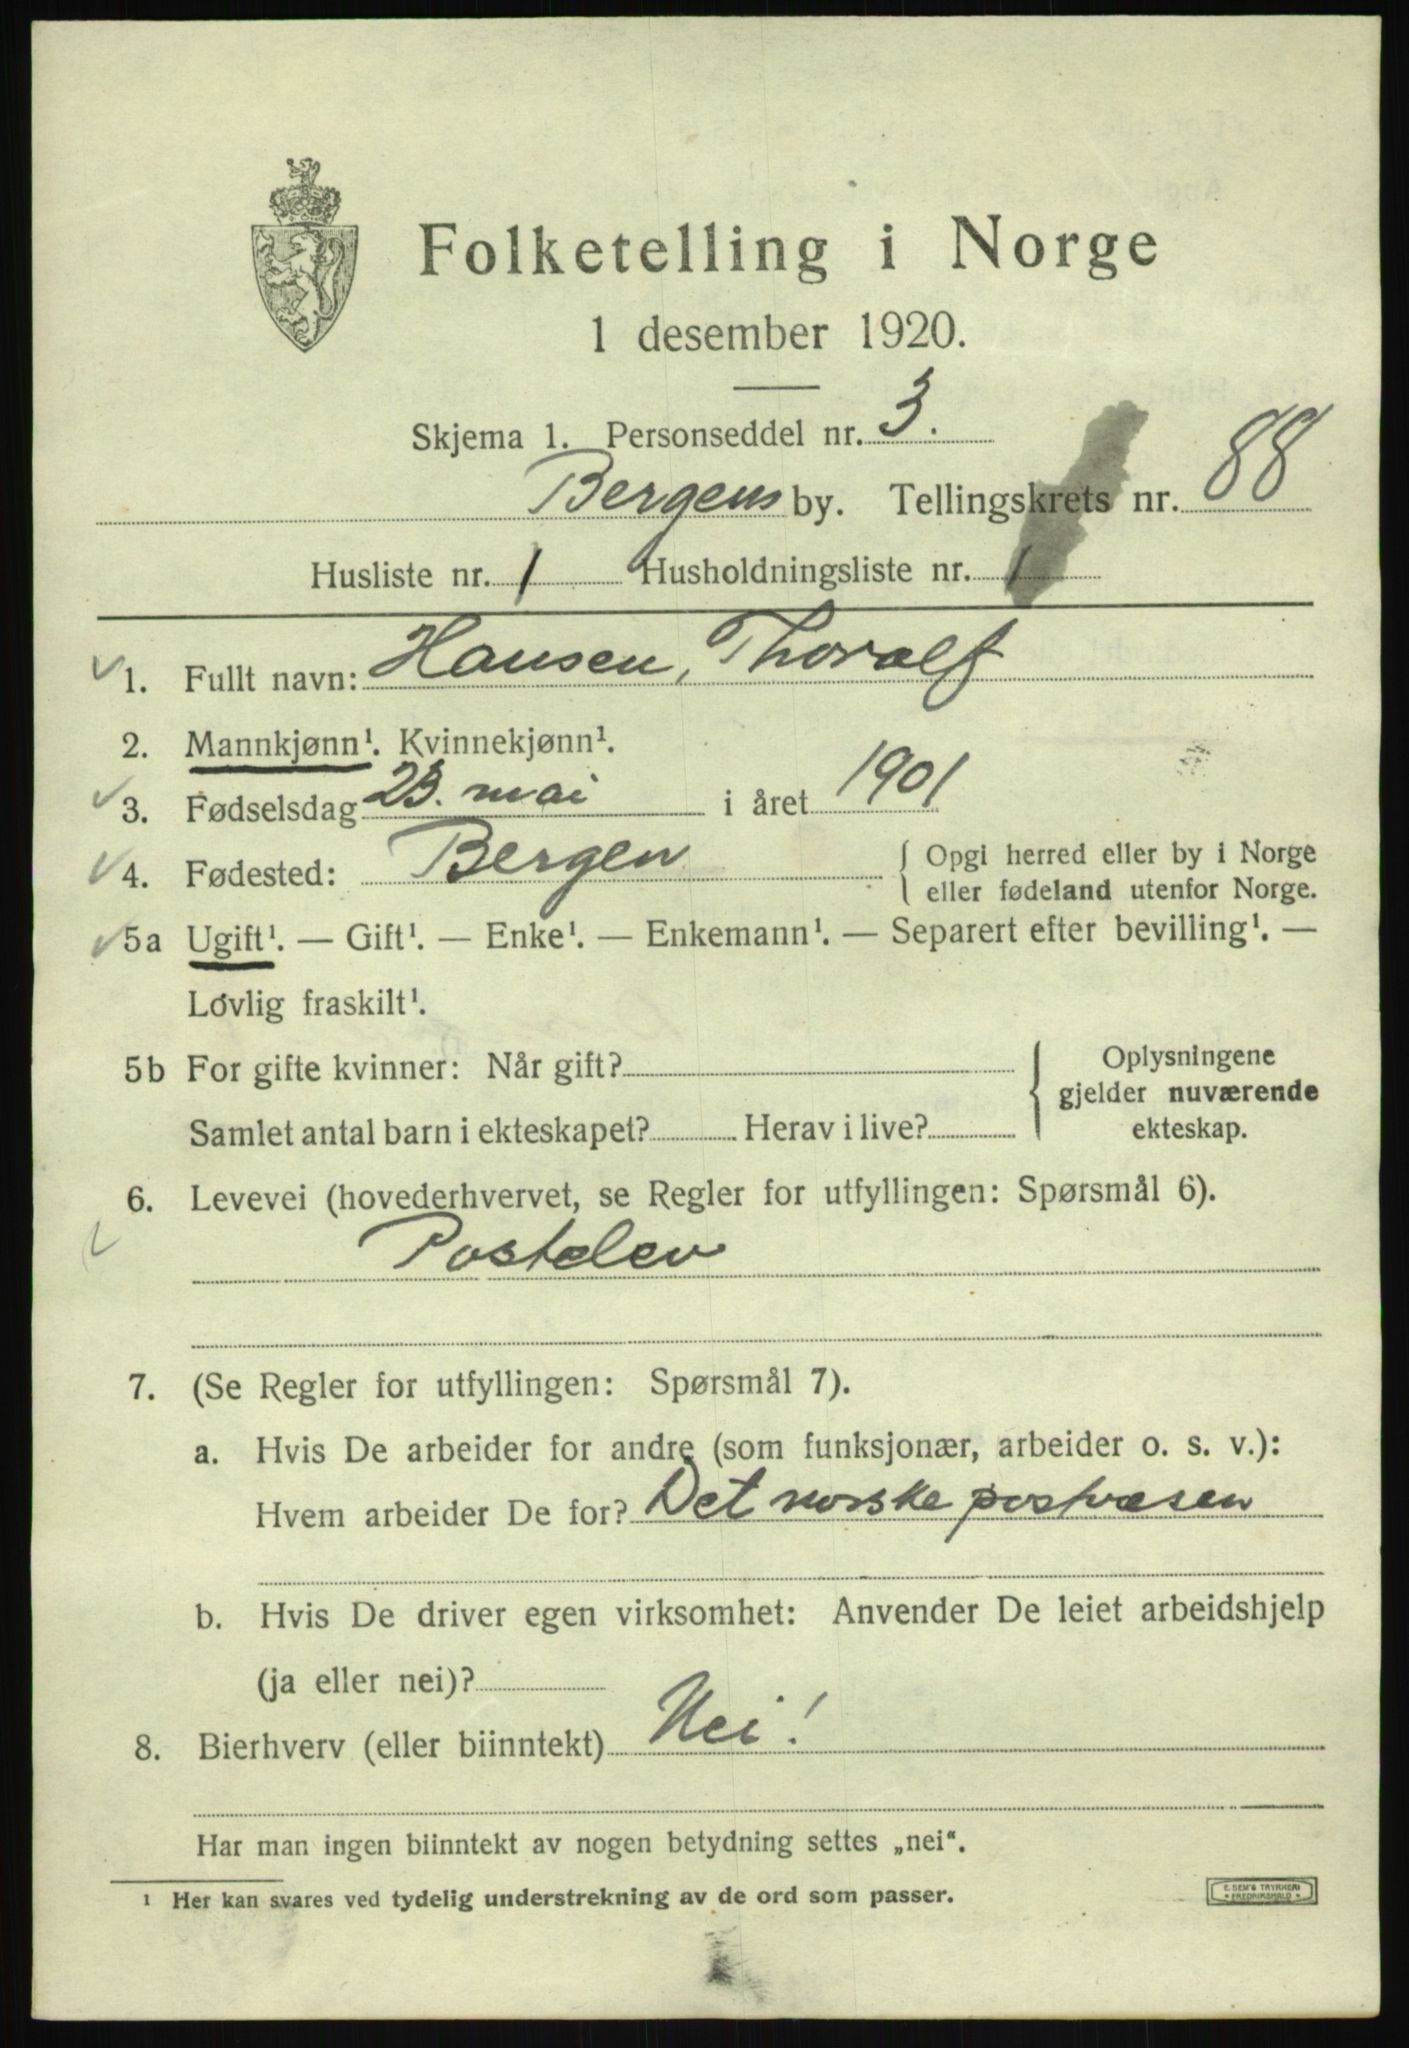 Folketelling i Norge
1 desember 1920.
Skjema 1. Personseddel nr. 3.
Bergens by. Tellingskrets nr. 88
Husliste nr. 1 Husholdningsliste nr. 1
1. Fullt navn: Hansen, Thoralf
2. Mannkjønn¹. Kvinnekjønn¹.
3. Fødselsdag 23. mai i året 1901
4. Fødested: Bergen { Opgi herred eller by i Norge
eller fødeland utenfor Norge.
5a Ugift¹. — Gift¹. — Enke¹. — Enkemann¹. — Separert efter bevilling¹. —
Lovlig fraskilt¹.
5b For gifte kvinner: Når gift?
Samlet antal barn i ekteskapet? Herav i live?
{ Oplysningene
gjelder nuværende
ekteskap.
6. Levevei (hovederhvervet, se Regler for utfyllingen: Spørsmål 6).
Postelev
7. (Se Regler for utfyllingen: Spørsmål 7).
a. Hvis De arbeider for andre (som funksjonær, arbeider o. s. v.):
Hvem arbeider De for? Det norske postvæsen
b. Hvis De driver egen virksomhet: Anvender De leiet arbeidshjelp
(ja eller nei)?
8. Bierhverv (eller biinntekt) Nei!
Har man ingen biinntekt av nogen betydning settes „nei“.
¹ Her kan svares ved tydelig understrekning av de ord som passer.
E. SEM'S TRYKKERI
FREDRIKSHALD